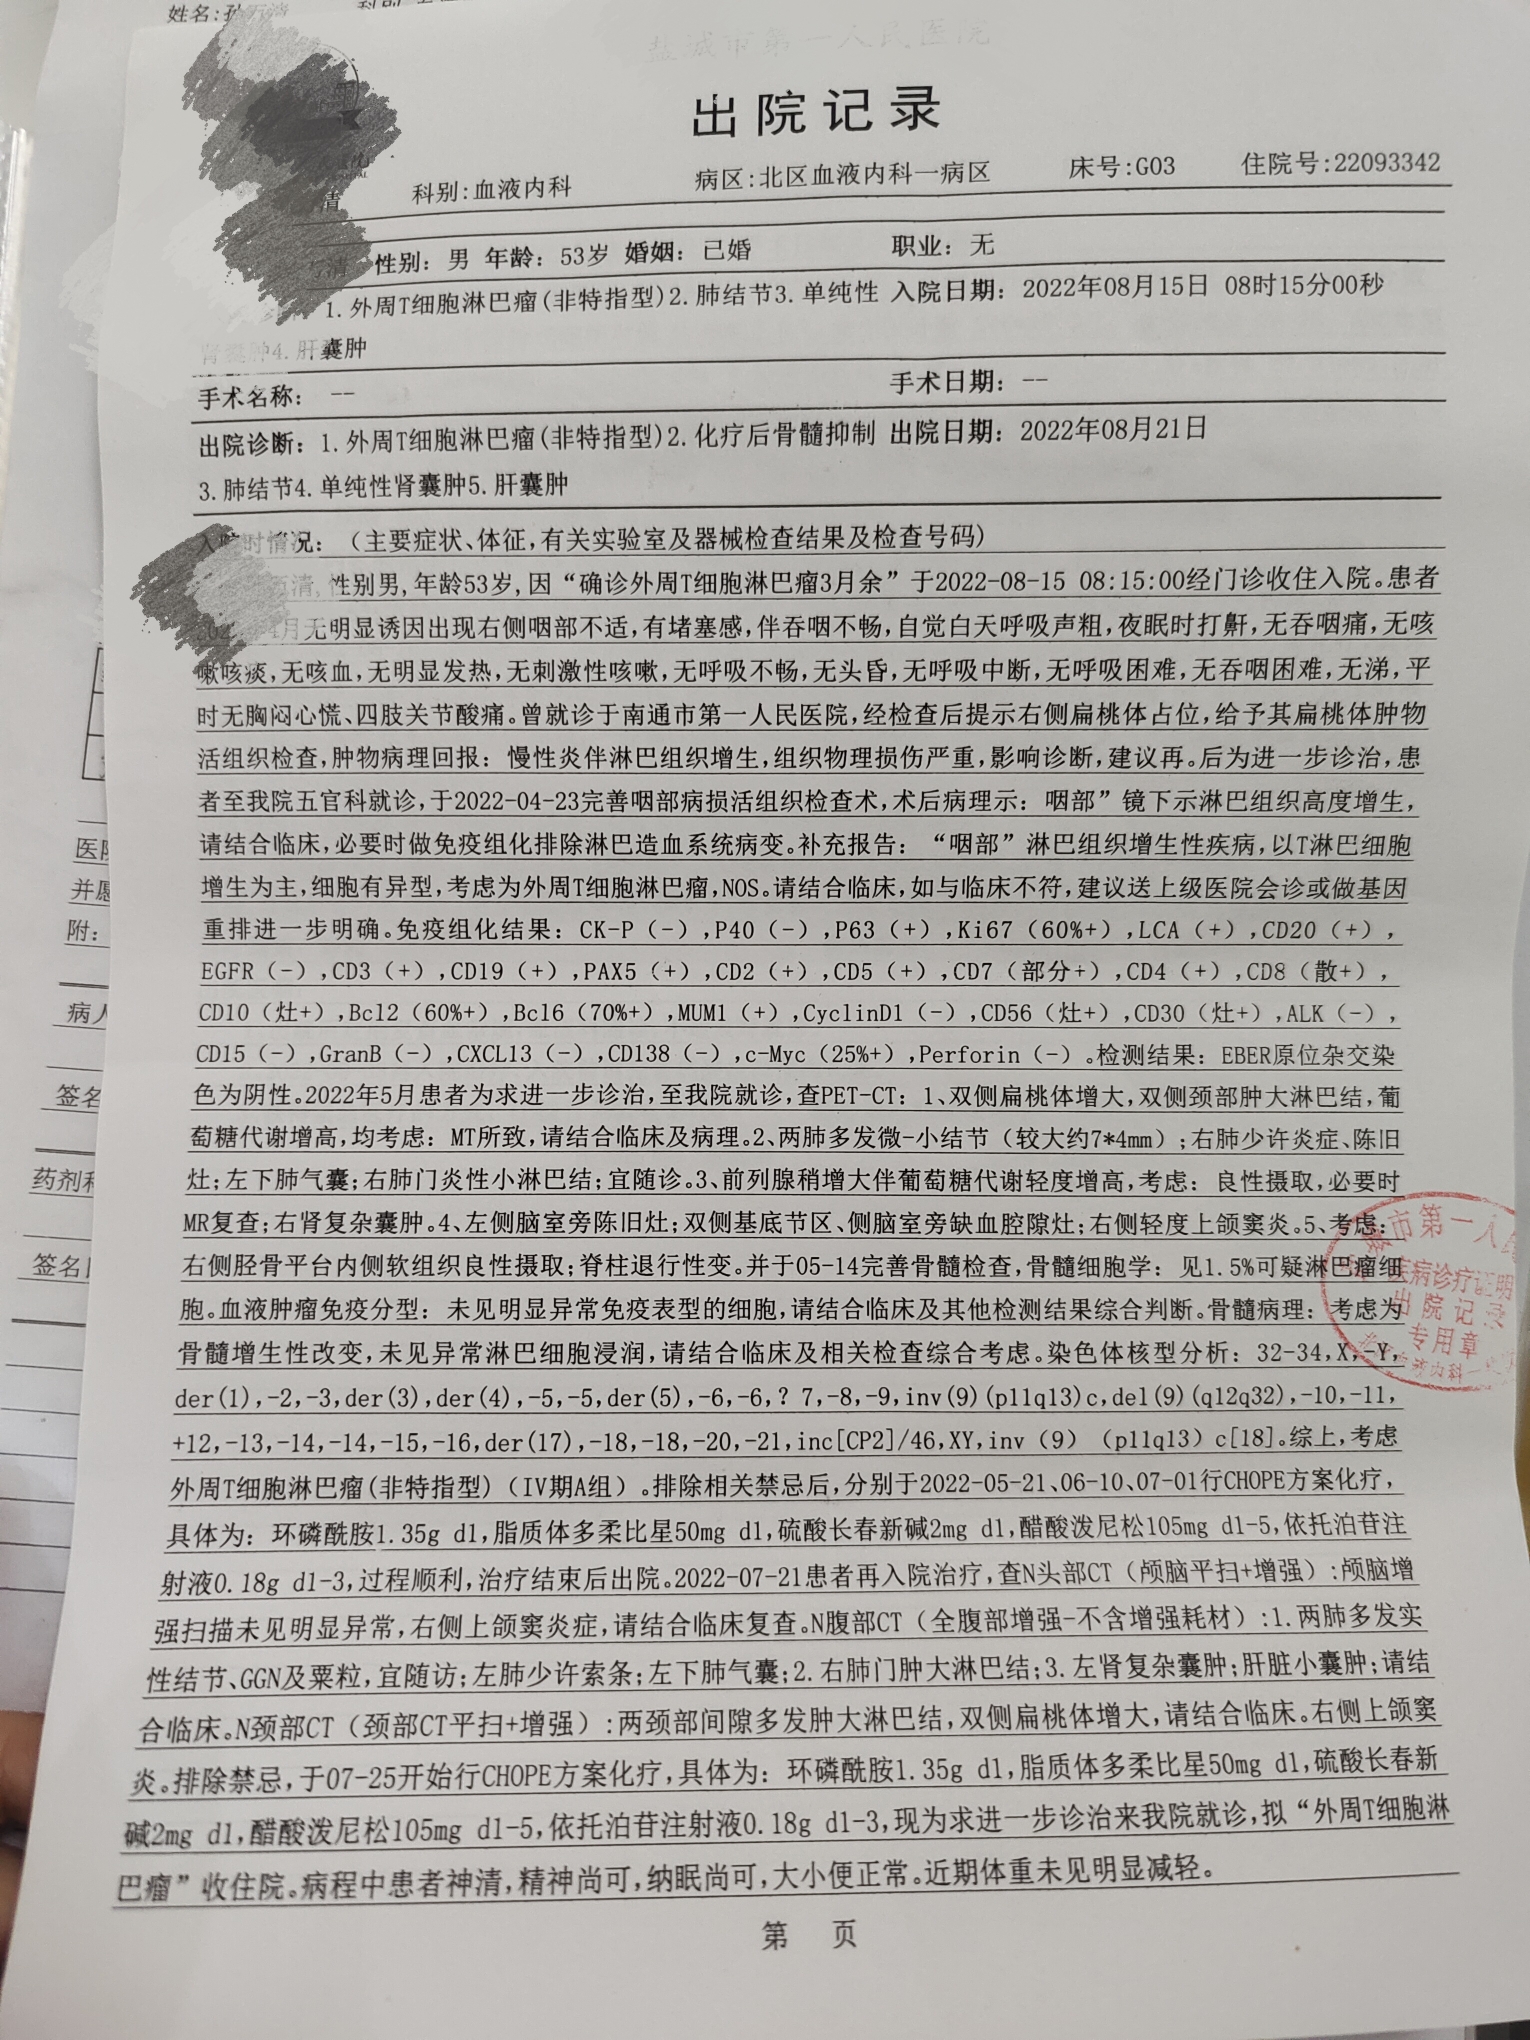 姓名:
科别:
盐城市第一人民医院
出院记录
清 科别:血液内科 病区:北区血液内科一病区 床号:G03 住院号:22093342
清 性别: 男 年龄: 53岁 婚姻: 已婚 职业: 无
1.外周T细胞淋巴瘤(非特指型)2.肺结节3.单纯性 入院日期: 2022年08月15日 08时15分00秒
肾囊肿4.肝囊肿
手术名称: -- 手术日期: --
出院诊断: 1.外周T细胞淋巴瘤(非特指型)2.化疗后骨髓抑制 出院日期: 2022年08月21日
3.肺结节4.单纯性肾囊肿5.肝囊肿
入院时情况: (主要症状、体征,有关实验室及器械检查结果及检查号码)
清,性别男,年龄53岁,因“确诊外周T细胞淋巴瘤3月余”于2022-08-15 08:15:00经门诊收住入院。患者
月无明显诱因出现右侧咽部不适,有堵塞感,伴吞咽不畅,自觉白天呼吸声粗,夜眠时打鼾,无吞咽痛,无咳
嗽咳痰,无咳血,无明显发热,无刺激性咳嗽,无呼吸不畅,无头昏,无呼吸中断,无呼吸困难,无吞咽困难,无涕,平
时无胸闷心慌、四肢关节酸痛。曾就诊于南通市第一人民医院,经检查后提示右侧扁桃体占位,给予其扁桃体肿物
活组织检查,肿物病理回报: 慢性炎伴淋巴组织增生,组织物理损伤严重,影响诊断,建议再。后为进一步诊治,患
者至我院五官科就诊,于2022-04-23完善咽部病损活组织检查术,术后病理示: 咽部”镜下示淋巴组织高度增生,
请结合临床,必要时做免疫组化排除淋巴造血系统病变。补充报告: “咽部”淋巴组织增生性疾病,以T淋巴细胞
增生为主,细胞有异型,考虑为外周T细胞淋巴瘤,NOS。请结合临床,如与临床不符,建议送上级医院会诊或做基因
重排进一步明确。免疫组化结果: CK-P（-）,P40（-）,P63（+）,Ki67（60%+）,LCA（+）,CD20（+）,
EGFR（-）,CD3（+）,CD19（+）,PAX5（+）,CD2（+）,CD5（+）,CD7（部分+）,CD4（+）,CD8（散+）,
CD10（灶+）,Bcl2（60%+）,Bcl6（70%+）,MUM1（+）,CyclinD1（-）,CD56（灶+）,CD30（灶+）,ALK（-）,
CD15（-）,GranB（-）,CXCL13（-）,CD138（-）,c-Myc（25%+）,Perforin（-）。检测结果: EBER原位杂交染
色为阴性。2022年5月患者为求进一步诊治,至我院就诊,查PET-CT: 1、双侧扁桃体增大,双侧颈部肿大淋巴结,葡
萄糖代谢增高,均考虑: MT所致,请结合临床及病理。2、两肺多发微-小结节（较大约7*4mm）;右肺少许炎症、陈旧
灶;左下肺气囊;右肺门炎性小淋巴结;宜随诊。3、前列腺稍增大伴葡萄糖代谢轻度增高,考虑: 良性摄取,必要时
MR复查;右肾复杂囊肿。4、左侧脑室旁陈旧灶;双侧基底节区、侧脑室旁缺血腔隙灶;右侧轻度上颌窦炎。5、考虑:
右侧胫骨平台内侧软组织良性摄取;脊柱退行性变。并于05-14完善骨髓检查,骨髓细胞学: 见1.5%可疑淋巴瘤细
胞。血液肿瘤免疫分型: 未见明显异常免疫表型的细胞,请结合临床及其他检测结果综合判断。骨髓病理: 考虑为
骨髓增生性改变,未见异常淋巴细胞浸润,请结合临床及相关检查综合考虑。染色体核型分析: 32-34,X,-Y,
der(1),-2,-3,der(3),der(4),-5,-5,der(5),-6,-6,？7,-8,-9,inv(9)(p11q13)c,del(9)(q12q32),-10,-11,
+12,-13,-14,-14,-15,-16,der(17),-18,-18,-20,-21,inc[CP2]/46,XY,inv（9）（p11q13）c[18]。综上,考虑
外周T细胞淋巴瘤(非特指型)（IV期A组）。排除相关禁忌后,分别于2022-05-21、06-10、07-01行CHOPE方案化疗,
具体为: 环磷酰胺1.35g d1,脂质体多柔比星50mg d1,硫酸长春新碱2mg d1,醋酸泼尼松105mg d1-5,依托泊苷注
射液0.18g d1-3,过程顺利,治疗结束后出院。2022-07-21患者再入院治疗,查N头部CT（颅脑平扫+增强）:颅脑增
强扫描未见明显异常,右侧上颌窦炎症,请结合临床复查。N腹部CT（全腹部增强-不含增强耗材）:1.两肺多发实
性结节、GGN及粟粒,宜随访;左肺少许索条;左下肺气囊;2.右肺门肿大淋巴结;3.左肾复杂囊肿;肝脏小囊肿;请结
合临床。N颈部CT（颈部CT平扫+增强）:两颈部间隙多发肿大淋巴结,双侧扁桃体增大,请结合临床。右侧上颌窦
炎。排除禁忌,于07-25开始行CHOPE方案化疗,具体为: 环磷酰胺1.35g d1,脂质体多柔比星50mg d1,硫酸长春新
碱2mg d1,醋酸泼尼松105mg d1-5,依托泊苷注射液0.18g d1-3,现为求进一步诊治来我院就诊,拟“外周T细胞淋
巴瘤”收住院。病程中患者神清,精神尚可,纳眠尚可,大小便正常。近期体重未见明显减轻。
第 页
医院
并愿
附:
病人
签名
药剂科
签名
市第一人民
疾病诊疗证明
出院记录
专用章
血液内科一